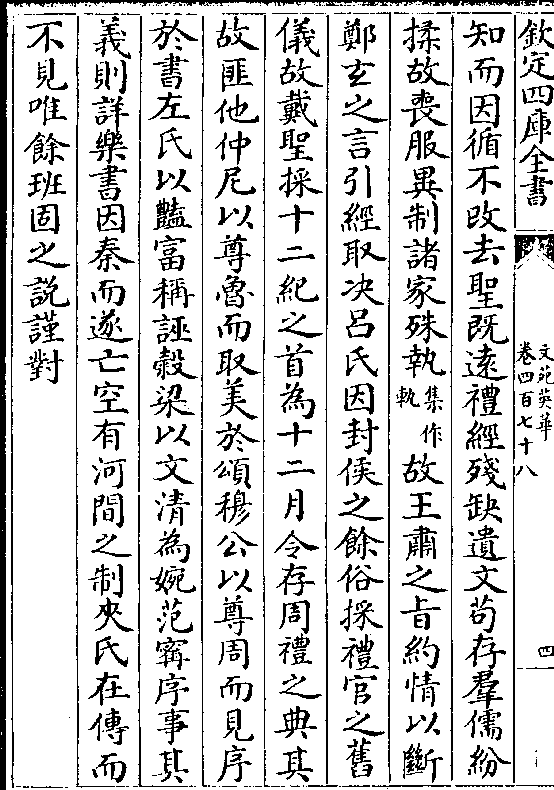 欽定四庫全書
文苑英華
卷四百七十八
四
知而因循不改去聖既遠禮經殘缺遺文茍存羣儒紛
揉故喪服異制諸家殊執集作軌故王肅之旨約情以斷
鄭玄之言引經取决呂氏因封侯之餘俗採禮官之舊
儀故戴聖採十二紀之首為十二月令存周禮之典其
故匪他仲尼以尊魯而取美於頌穆公以尊周而見序
於書左氏以豔富稱誣穀梁以文清為婉范甯序事其
義則詳樂書因秦而遂亡空有河間之制夾氏在傳而
不見唯餘班固之説謹對